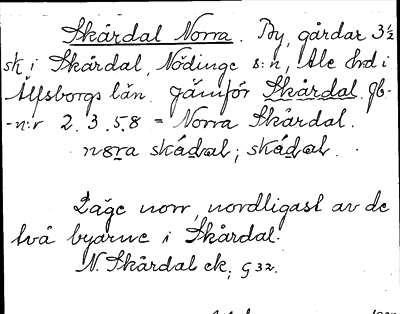 Skårdal Norra. By, gårdar 3½
sk i Skårdal, Nödinge s:n, Ale hd i
Älfsborgs län. Jämför Skårdal gb-
-n:r 2.3.5.8 = Norra Skårdal.
nora skádal; skádal.
Läge norr, nordligast av de
två byarne i Skårdal.
N. Skårdal ek, G 32.